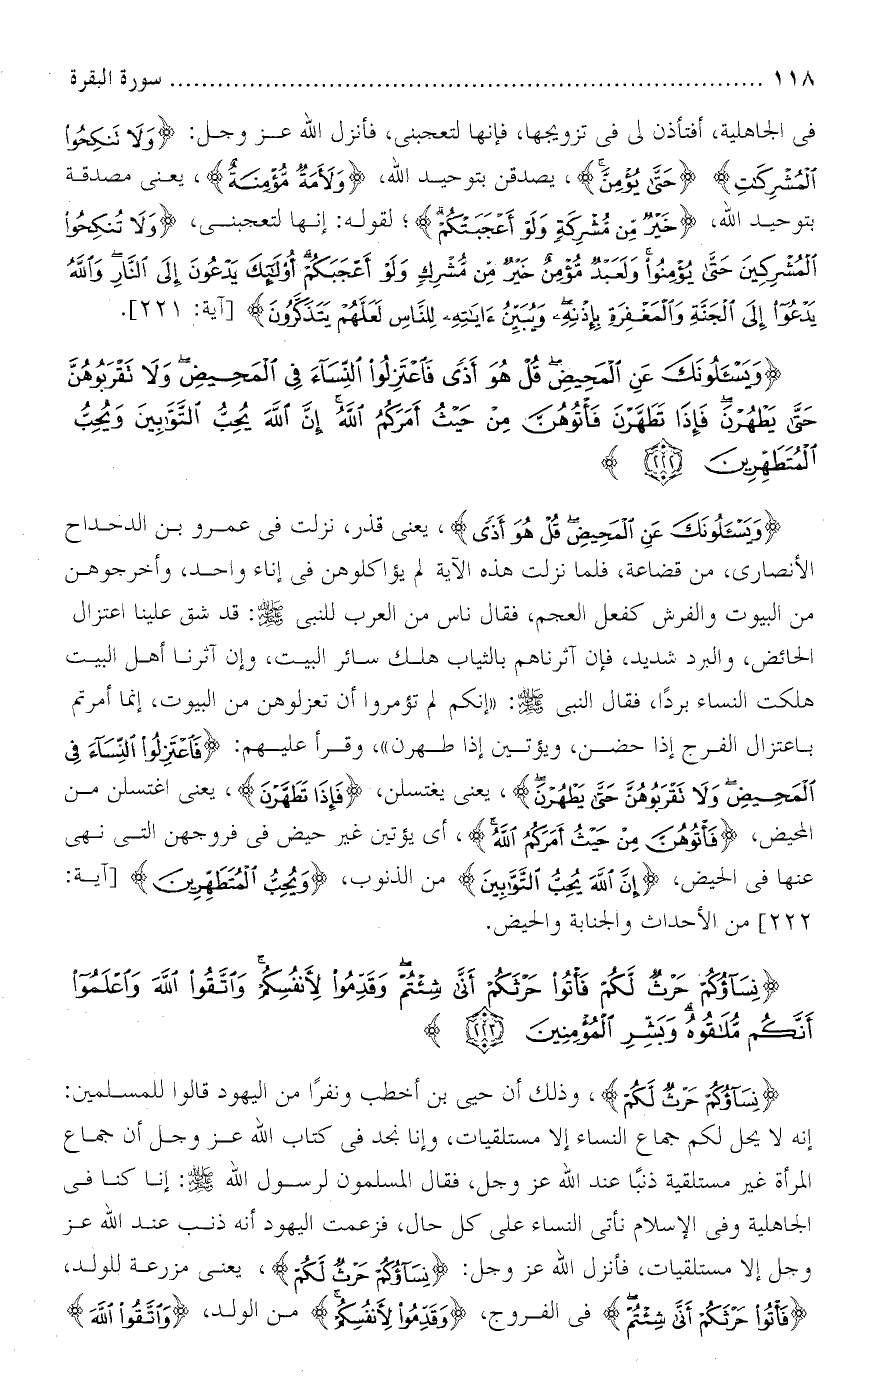 ١١٨ ........................................................................... سورة البقرة
فى الجاهلية، أفتأذن لى فى تزويجها، فإنها لتعجبنى، فأنزل الله عز وجل: ﴿وَلَا تَنكِحُوا۟
ٱلْمُشْرِكَٰتِ﴾ ﴿حَتَّىٰ يُؤْمِنَّ ۚ﴾، يصدقن بتوحيد الله، ﴿وَلَأَمَةٌ مُّؤْمِنَةٌ﴾، يعنى مصدقة
بتوحيد الله، ﴿خَيْرٌ مِّن مُّشْرِكَةٍ وَلَوْ أَعْجَبَتْكُمْ ۗ﴾؛ لقوله: إنها لتعجبنى، ﴿وَلَا تُنكِحُوا۟
ٱلْمُشْرِكِينَ حَتَّىٰ يُؤْمِنُوا۟ ۚ وَلَعَبْدٌ مُّؤْمِنٌ خَيْرٌ مِّن مُّشْرِكٍ وَلَوْ أَعْجَبَكُمْ ۗ أُو۟لَٰٓئِكَ يَدْعُونَ إِلَى ٱلنَّارِ ۖ وَٱللَّهُ
يَدْعُوٓا۟ إِلَى ٱلْجَنَّةِ وَٱلْمَغْفِرَةِ بِإِذْنِهِۦ ۖ وَيُبَيِّنُ ءَايَٰتِهِۦ لِلنَّاسِ لَعَلَّهُمْ يَتَذَكَّرُونَ﴾ [آية: ٢٢١].
﴿وَيَسْـَٔلُونَكَ عَنِ ٱلْمَحِيضِ ۖ قُلْ هُوَ أَذًى فَٱعْتَزِلُوا۟ ٱلنِّسَآءَ فِى ٱلْمَحِيضِ ۖ وَلَا تَقْرَبُوهُنَّ
حَتَّىٰ يَطْهُرْنَ ۖ فَإِذَا تَطَهَّرْنَ فَأْتُوهُنَّ مِنْ حَيْثُ أَمَرَكُمُ ٱللَّهُ ۚ إِنَّ ٱللَّهَ يُحِبُّ ٱلتَّوَّٰبِينَ وَيُحِبُّ
ٱلْمُتَطَهِّرِينَ ٢٢٢ ﴾
﴿وَيَسْـَٔلُونَكَ عَنِ ٱلْمَحِيضِ ۖ قُلْ هُوَ أَذًى﴾، يعنى قذر، نزلت فى عمرو بن الدحداح
الأنصارى، من قضاعة، فلما نزلت هذه الآية لم يؤاكلوهن فى إناء واحد، وأخرجوهن
من البيوت والفرش كفعل العجم، فقال ناس من العرب للنبى ﷺ: قد شق علينا اعتزال
الحائض، والبرد شديد، فإن آثرناهم بالثياب هلك سائر البيت، وإن آثرنا أهل البيت
هلكت النساء بردًا، فقال النبى ﷺ: «إنكم لم تؤمروا أن تعزلوهن من البيوت، إنما أمرتم
باعتزال الفرج إذا حضن، ويؤتين إذا طهرن»، وقرأ عليهم: ﴿فَٱعْتَزِلُوا۟ ٱلنِّسَآءَ فِى
ٱلْمَحِيضِ ۖ وَلَا تَقْرَبُوهُنَّ حَتَّىٰ يَطْهُرْنَ ۖ﴾، يعنى يغتسلن، ﴿فَإِذَا تَطَهَّرْنَ﴾، يعنى اغتسلن من
المحيض، ﴿فَأْتُوهُنَّ مِنْ حَيْثُ أَمَرَكُمُ ٱللَّهُ ۚ﴾، أى يؤتين غير حيض فى فروجهن التى نهى
عنها فى الحيض، ﴿إِنَّ ٱللَّهَ يُحِبُّ ٱلتَّوَّٰبِينَ﴾ من الذنوب، ﴿وَيُحِبُّ ٱلْمُتَطَهِّرِينَ﴾ [آية:
٢٢٢] من الأحداث والجنابة والحيض.
﴿نِسَآؤُكُمْ حَرْثٌ لَّكُمْ فَأْتُوا۟ حَرْثَكُمْ أَنَّىٰ شِئْتُمْ ۖ وَقَدِّمُوا۟ لِأَنفُسِكُمْ ۚ وَٱتَّقُوا۟ ٱللَّهَ وَٱعْلَمُوٓا۟
أَنَّكُم مُّلَٰقُوهُ ۗ وَبَشِّرِ ٱلْمُؤْمِنِينَ ٢٢٣ ﴾
﴿نِسَآؤُكُمْ حَرْثٌ لَّكُمْ﴾، وذلك أن حيى بن أخطب ونفرًا من اليهود قالوا للمسلمين:
إنه لا يحل لكم جماع النساء إلا مستلقيات، وإنا نجد فى كتاب الله عز وجل أن جماع
المرأة غير مستلقية ذنبًا عند الله عز وجل، فقال المسلمون لرسول الله ﷺ: إنا كنا فى
الجاهلية وفى الإسلام نأتى النساء على كل حال، فزعمت اليهود أنه ذنب عند الله عز
وجل إلا مستلقيات، فأنزل الله عز وجل: ﴿نِسَآؤُكُمْ حَرْثٌ لَّكُمْ﴾، يعنى مزرعة للولد،
﴿فَأْتُوا۟ حَرْثَكُمْ أَنَّىٰ شِئْتُمْ ۖ﴾ فى الفروج، ﴿وَقَدِّمُوا۟ لِأَنفُسِكُمْ ۚ﴾ من الولد، ﴿وَٱتَّقُوا۟ ٱللَّهَ﴾